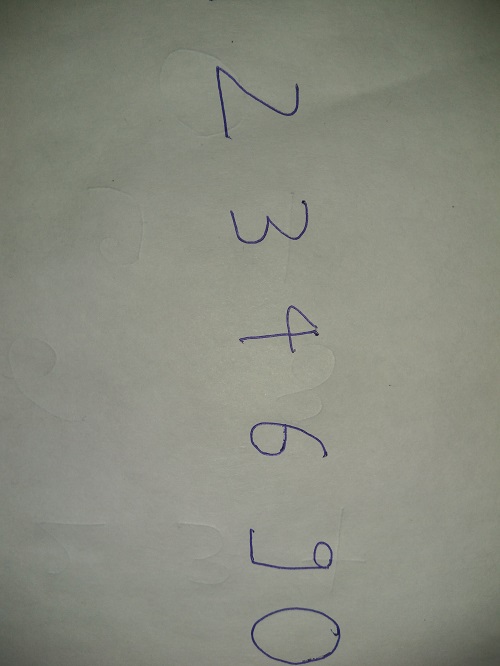 2 3 4 6 9 0